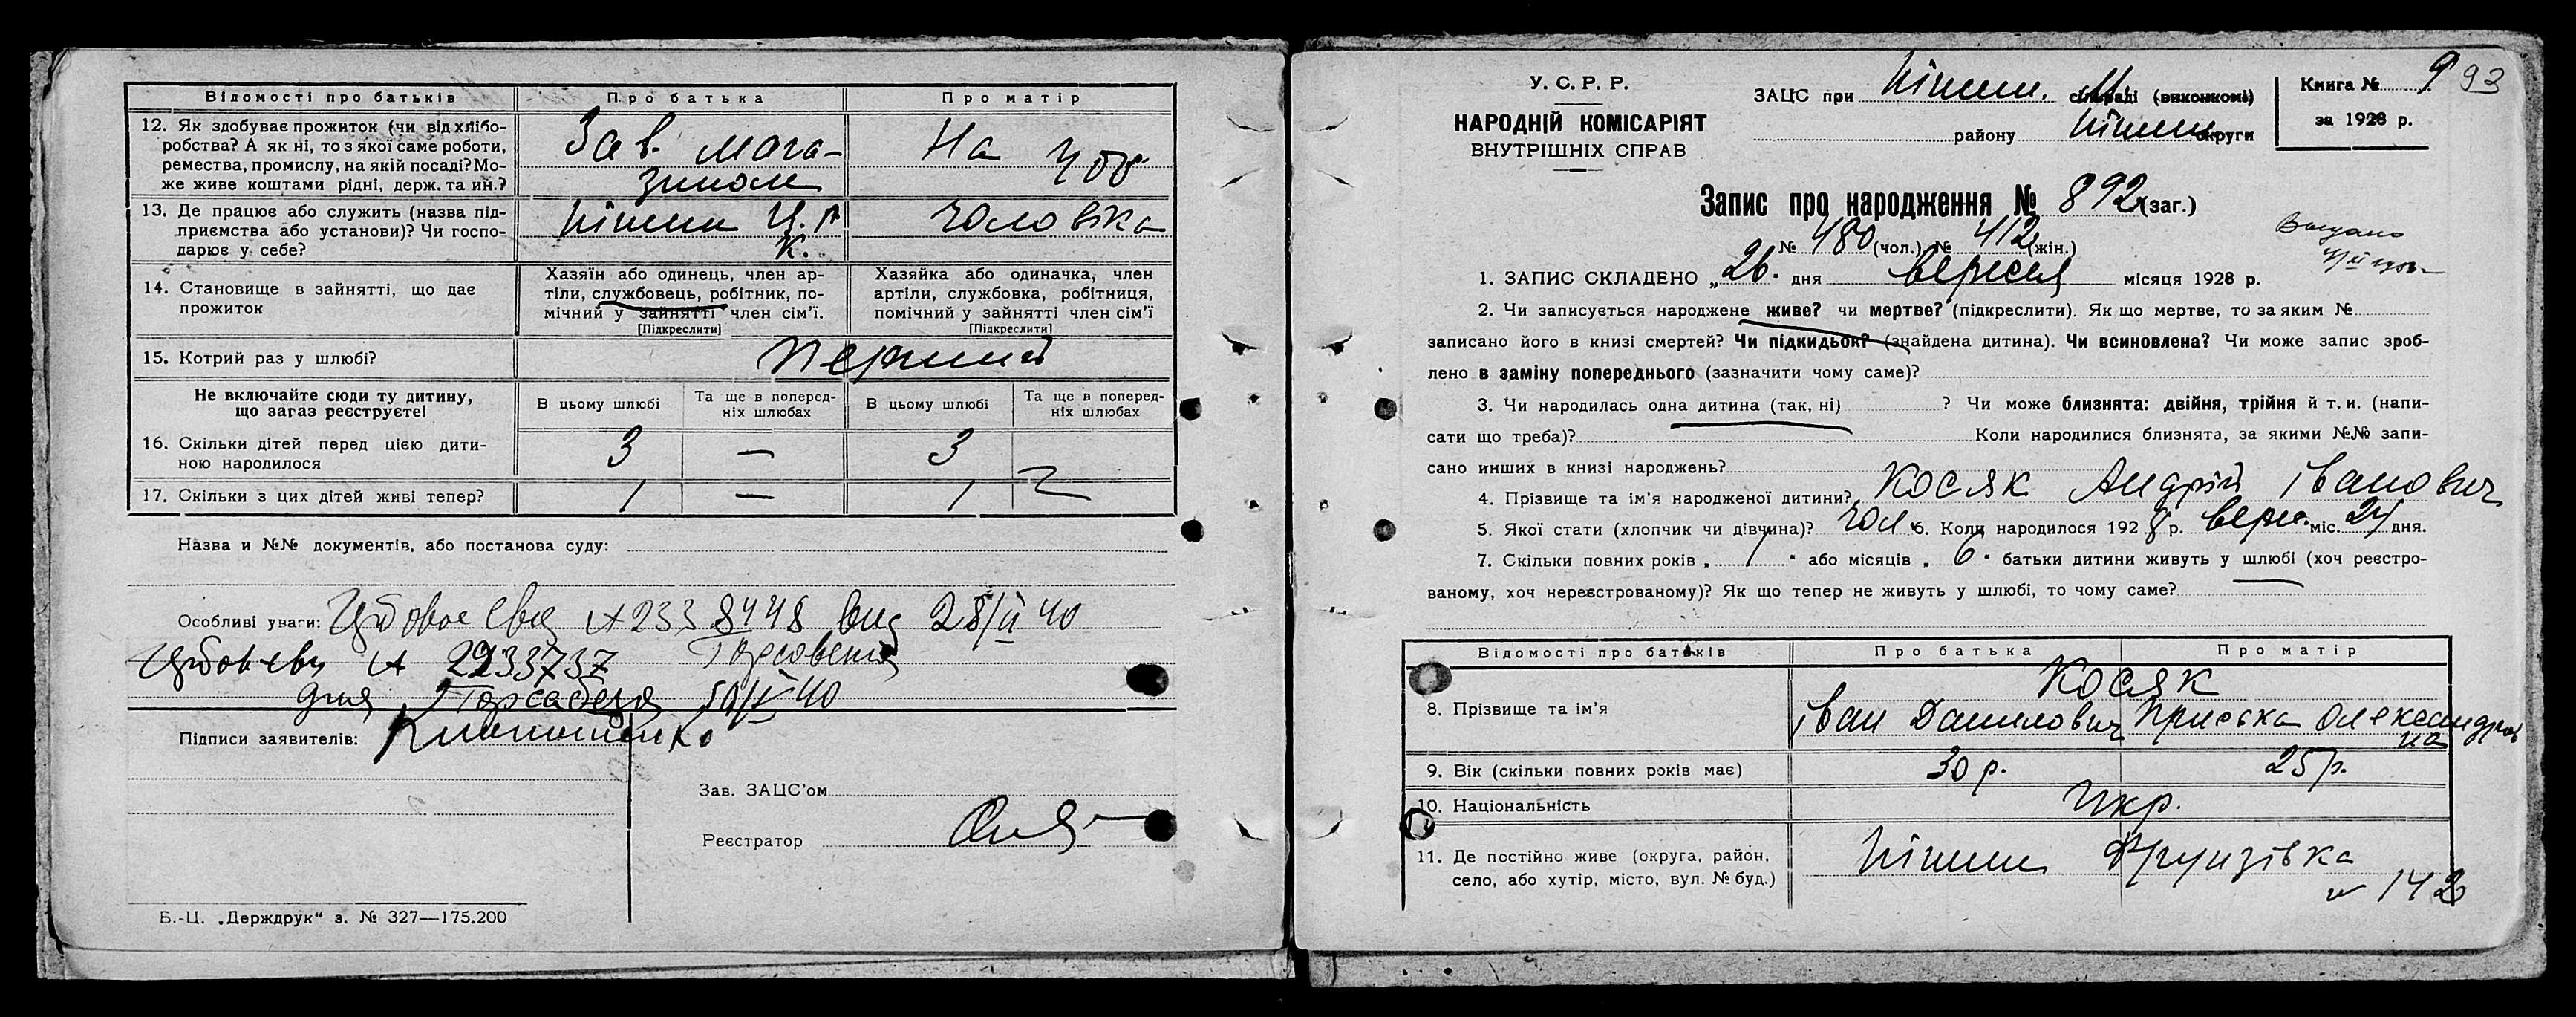 Відомості про батьків Про батька Про матір
12. Як здобуває прожиток (чи від хлібо-
робства? А як ні, то з якої саме роботи,
ремества, промислу, на якій посаді? Мо-
же живе коштами рідні, держ. та ин.?
Зав. мага-
зином
На
13. Де працює або служить (назва під-
приємства або установи)? Чи госпо-
дарює у себе?
Ніжин
К.
чоловіка
14. Становище в зайнятті, що дає
прожиток
Хазяїн або одинець, член ар-
тіли, службовець, робітник, по-
мічний у зайнятті член сім'ї.
[Підкреслити]
Хазяйка або одиначка, член
артіли, службовка, робітниця,
помічний у зайнятті член сім'ї
[Підкреслити]
15. Котрий раз у шлюбі? перший
Не включайте сюди ту дитину,
що зараз реєструєте!
В цьому шлюбі
Та ще в поперед-
ніх шлюбах
В цьому шлюбі
Та ще в поперед-
ніх шлюбах
16. Скільки дітей перед цією дити-
ною народилося
3 — 3
17. Скільки з цих дітей живі тепер? 1 — 1
Назва и №№ документів, або постанова суду:
Особливі уваги: 28/II 40
А
40
Підписи заявителів:
Зав. ЗАЦС'ом
Реєстратор
Б.-Ц. „Держдрук“ з. № 327—175.200
У. С. Р. Р.
НАРОДНІЙ КОМІСАРІЯТ
ВНУТРІШНІХ СПРАВ
ЗАЦС при Ніжин. сільраді (виконкомі)
району Ніжин округи
Книга № 9 93
за 1928 р.
Запис про народження № 892 (заг.)
№ 480 (чол.) № 412 (жін.)
1. ЗАПИС СКЛАДЕНО „26. дня вересня місяця 1928 р.
2. Чи записується народжене живе? чи мертве? (підкреслити). Як що мертве, то за яким №
записано його в книзі смертей? Чи підкидьок? (знайдена дитина). Чи всиновлена? Чи може запис зроб-
лено в заміну попереднього (зазначити чому саме)?
3. Чи народилась одна дитина (так, ні) ? Чи може близнята: двійня, трійня й т. и. (напи-
сати що треба)? Коли народилися близнята, за якими №№ запи-
сано инших в книзі народжень?
4. Прізвище та ім'я народженої дитини? Косяк Андрій Іванович
5. Якої стати (хлопчик чи дівчина)? чол. 6. Коли народилося 1928 р. верес. міс. 24 дня.
7. Скільки повних років „ 1 “ або місяців „ 6 “ батьки дитини живуть у шлюбі (хоч реєстро-
ваному, хоч нереєстрованому)? Як що тепер не живуть у шлюбі, то чому саме?
Відомості про батьків Про батька Про матір
Косяк
8. Прізвище та ім'я Іван Данилович Приська Олександров
на
9. Вік (скільки повних років має) 30 р. 25 р.
10. Національність Укр.
11. Де постійно живе (округа, район,
село, або хутір, місто, вул. № буд.)
Ніжин Фрунзівка